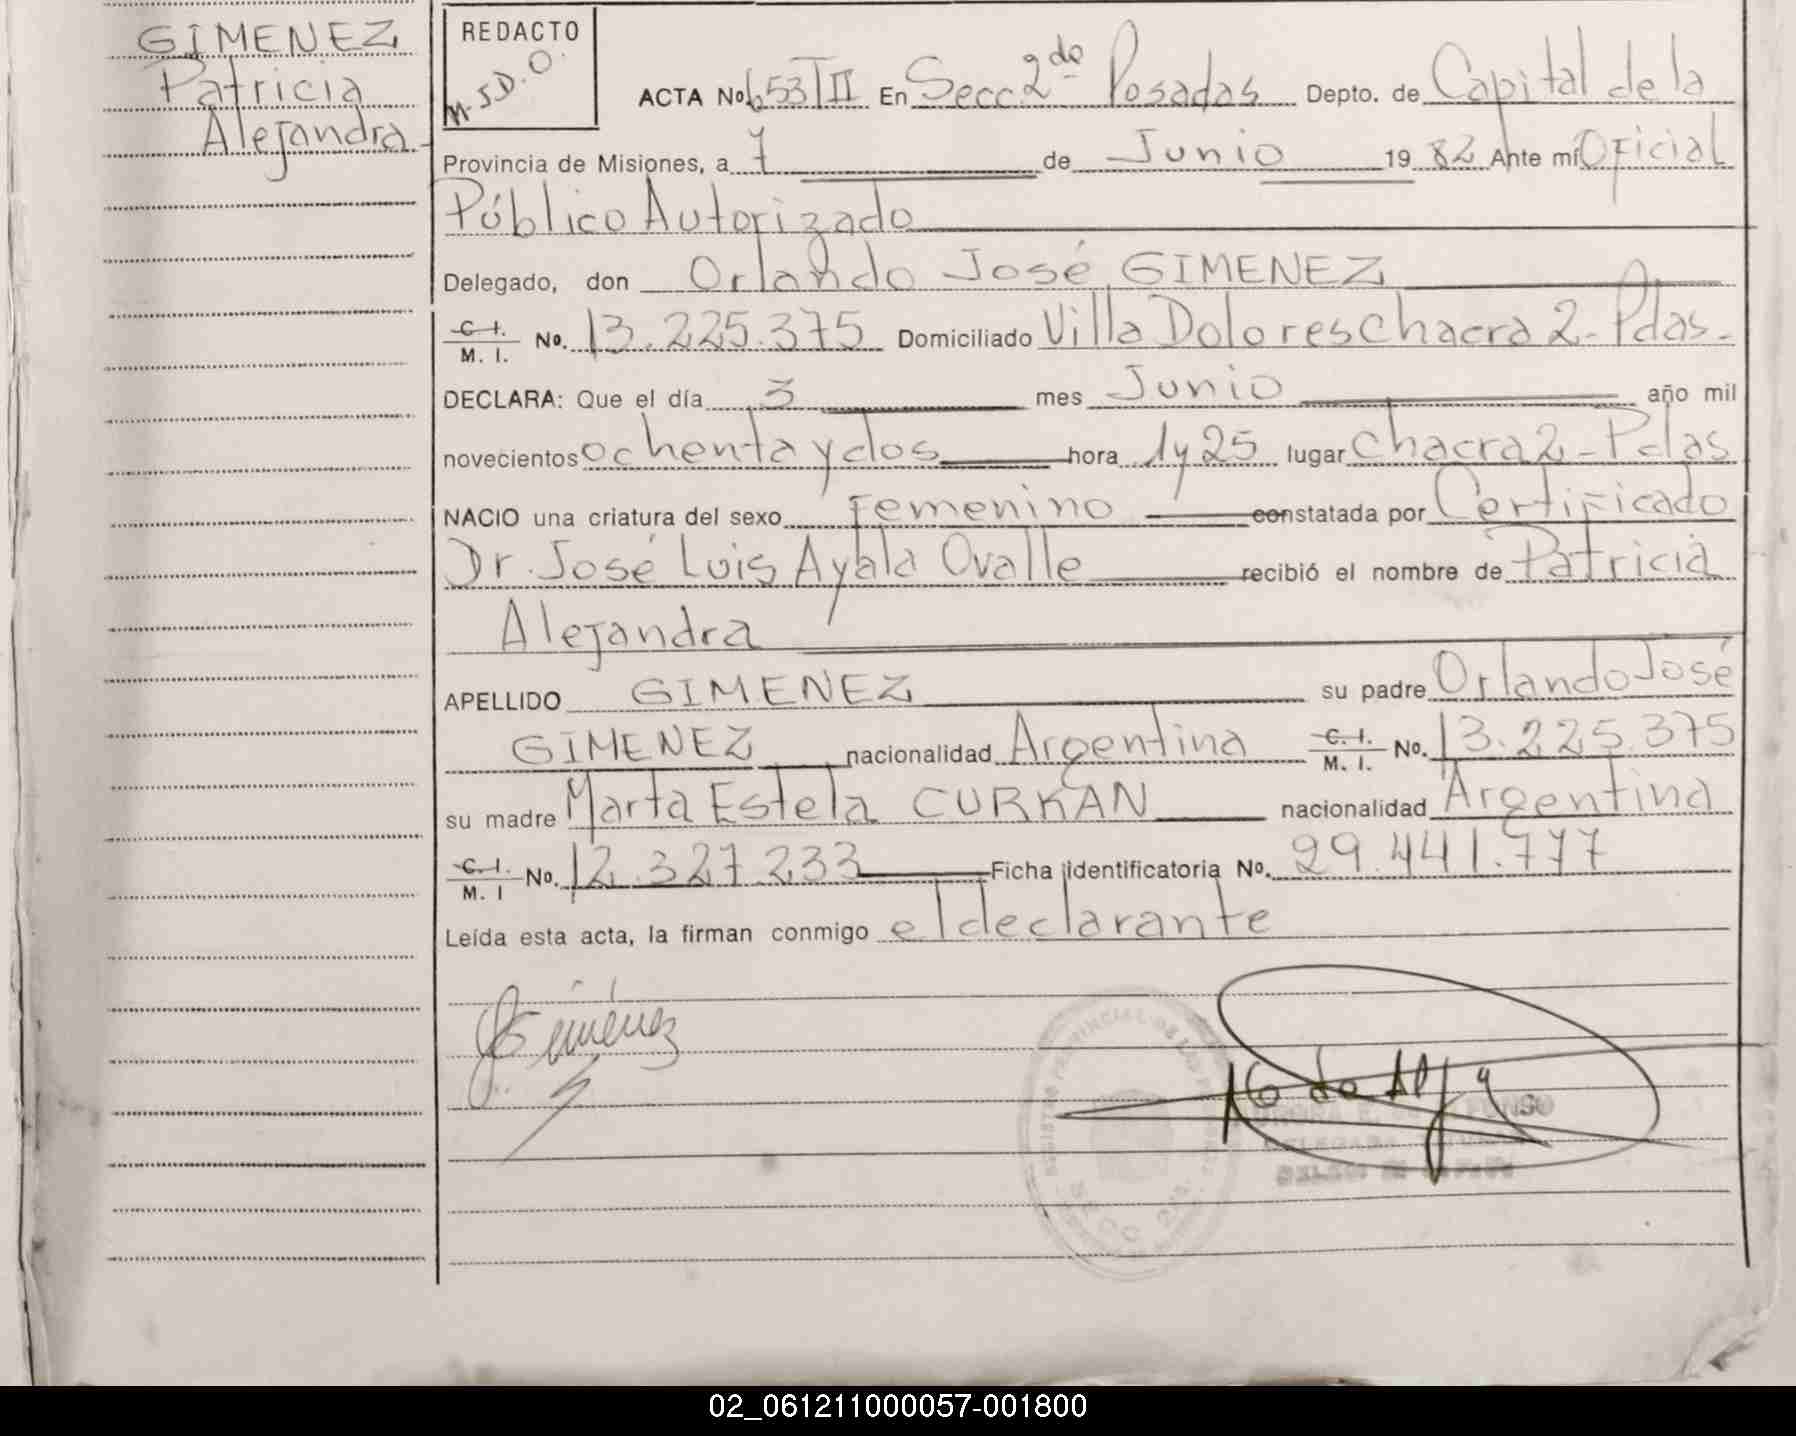 GIMENEZ
Patricia
Alejandra
REDACTO
M.S.D.O.
ACTA No. 653 T II En Secc. 2da Posadas Depto. de Capital de la
Provincia de Misiones, a 7 de Junio 1982 Ante mí Oficial
Público Autorizado
Delegado, don Orlando José GIMENEZ
C. I. M. I. No. 13.225.375 Domiciliado Villa Dolores Chacra 2 - Pdas -
DECLARA: Que el día 3 mes Junio año mil
novecientos ochenta y dos hora 1 y 25 lugar Chacra 2 - Pdas
NACIO una criatura del sexo Femenino constatada por Certificado
Dr. José Luis Ayala Ovalle recibió el nombre de Patricia
Alejandra
APELLIDO GIMENEZ su padre Orlando José
GIMENEZ nacionalidad Argentina C. I. M. I. No. 13.225.375
su madre Marta Estela CURKAN nacionalidad Argentina
C. I. M. I No. 12.327.233 Ficha identificatoria No. 29.441.777
Leída esta acta, la firman conmigo el declarante
Giménez
02_061211000057-001800